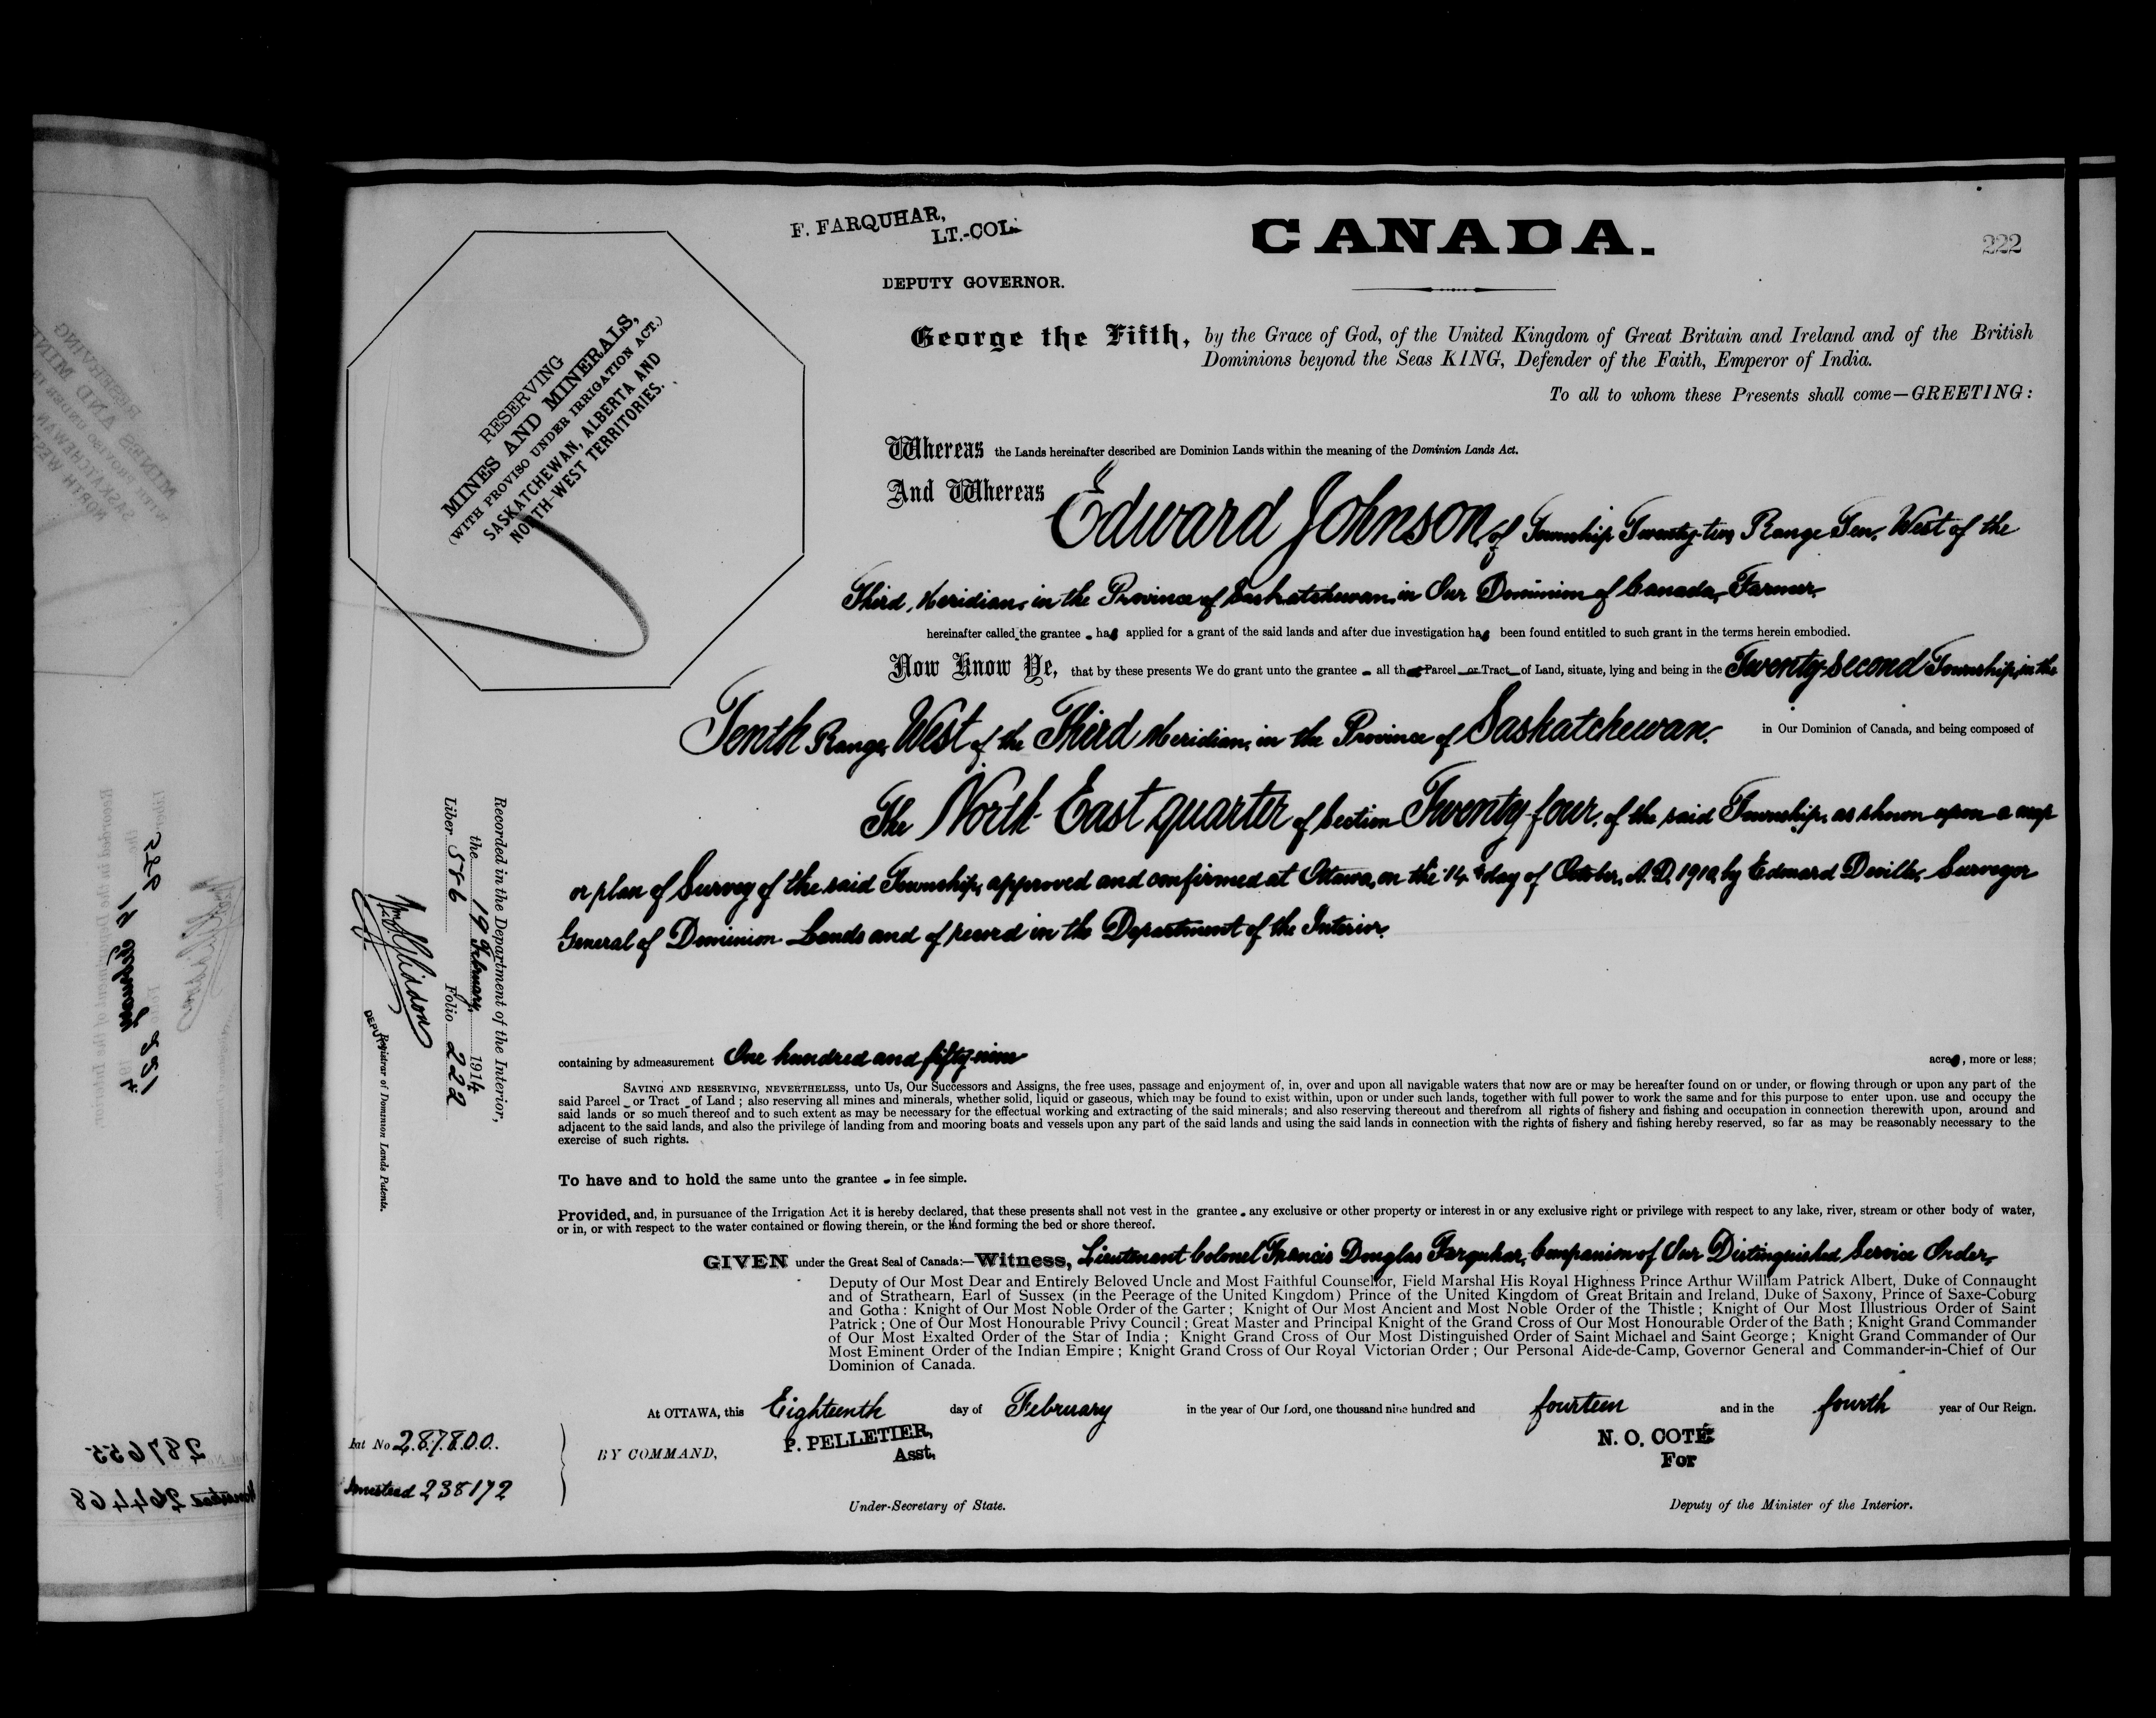 F. FARQUHAR,
LT.-COL.
DEPUTY GOVERNOR.
CANADA.
222
RESERVING
MINES AND MINERALS,
(WITH PROVISO UNDER IRRIGATION ACT.)
SASKATCHEWAN, ALBERTA AND
NORTH-WEST TERRITORIES.
George the Fifth, by the Grace of God, of the United Kingdom of Great Britain and Ireland and of the British
Dominions beyond the Seas KING, Defender of the Faith, Emperor of India.
To all to whom these Presents shall come—GREETING:
Whereas the Lands hereinafter described are Dominion Lands within the meaning of the Dominion Lands Act.
And Whereas Edward Johnson, of Township Twenty-two, Range Ten, West of the
Third, Meridian, in the Province of Saskatchewan, in Our Dominion of Canada, Farmer,
hereinafter called the grantee - has applied for a grant of the said lands and after due investigation has been found entitled to such grant in the terms herein embodied.
Now Know Ye, that by these presents We do grant unto the grantee - all that Parcel or Tract of Land, situate, lying and being in the Twenty-Second Township, in the
Tenth Range, West of the Third Meridian, in the Province of Saskatchewan, in Our Dominion of Canada, and being composed of
The North East quarter of Section Twenty four, of the said Township, as shown upon a map
or plan of Survey of the said Township, approved and confirmed at Ottawa, on the 14th day of October, A.D. 1910, by Edouard Deville, Surveyor
General of Dominion Lands and of record in the Department of the Interior.
containing by admeasurement One hundred and fifty-nine acres, more or less;
SAVING AND RESERVING, NEVERTHELESS, unto Us, Our Successors and Assigns, the free uses, passage and enjoyment of, in, over and upon all navigable waters that now are or may be hereafter found on or under, or flowing through or upon any part of the
said Parcel - or Tract - of Land; also reserving all mines and minerals, whether solid, liquid or gaseous, which may be found to exist within, upon or under such lands, together with full power to work the same and for this purpose to enter upon, use and occupy the
said lands or so much thereof and to such extent as may be necessary for the effectual working and extracting of the said minerals; and also reserving thereout and therefrom all rights of fishery and fishing and occupation in connection therewith upon, around and
adjacent to the said lands, and also the privilege of landing from and mooring boats and vessels upon any part of the said lands and using the said lands in connection with the rights of fishery and fishing hereby reserved, so far as may be reasonably necessary to the
exercise of such rights.
To have and to hold the same unto the grantee - in fee simple.
Provided, and, in pursuance of the Irrigation Act it is hereby declared, that these presents shall not vest in the grantee - any exclusive or other property or interest in or any exclusive right or privilege with respect to any lake, river, stream or other body of water,
or in, or with respect to the water contained or flowing therein, or the land forming the bed or shore thereof.
GIVEN under the Great Seal of Canada:—Witness, Lieutenant Colonel Francis Douglas Farquhar, Companion of Our Distinguished Service Order,
Deputy of Our Most Dear and Entirely Beloved Uncle and Most Faithful Counsellor, Field Marshal His Royal Highness Prince Arthur William Patrick Albert, Duke of Connaught
and of Strathearn, Earl of Sussex (in the Peerage of the United Kingdom) Prince of the United Kingdom of Great Britain and Ireland, Duke of Saxony, Prince of Saxe-Coburg
and Gotha: Knight of Our Most Noble Order of the Garter; Knight of Our Most Ancient and Most Noble Order of the Thistle; Knight of Our Most Illustrious Order of Saint
Patrick; One of Our Most Honourable Privy Council; Great Master and Principal Knight of the Grand Cross of Our Most Honourable Order of the Bath; Knight Grand Commander
of Our Most Exalted Order of the Star of India; Knight Grand Cross of Our Most Distinguished Order of Saint Michael and Saint George; Knight Grand Commander of Our
Most Eminent Order of the Indian Empire; Knight Grand Cross of Our Royal Victorian Order; Our Personal Aide-de-Camp, Governor General and Commander-in-Chief of Our
Dominion of Canada.
At OTTAWA, this Eighteenth day of February in the year of Our Lord, one thousand nine hundred and fourteen and in the fourth year of Our Reign.
BY COMMAND,
P. PELLETIER,
Asst.
Under-Secretary of State.
N. O. COTÉ
For
Deputy of the Minister of the Interior.
Recorded in the Department of the Interior,
the 19 February, 1914
Liber 586 Folio 222
DEPUTY Registrar of Dominion Lands Patents.
at No 287800.
omestead 238172
287655
264468